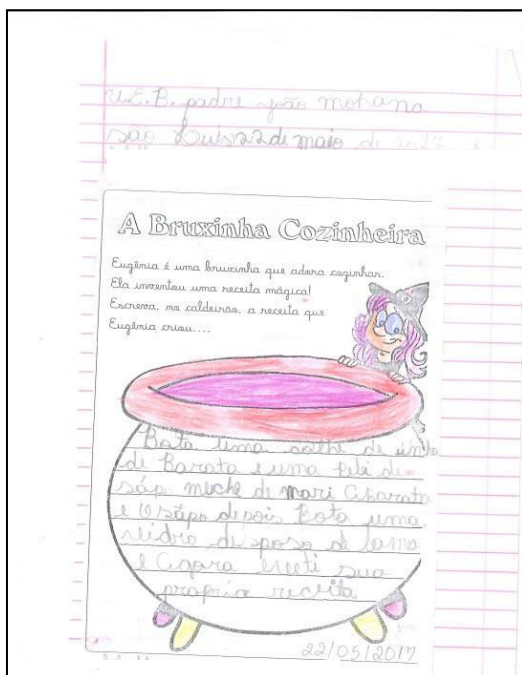 U.E.B. padre joão mohana
são Luis 22 de maio de 2017
A Bruxinha Cozinheira
Eugênia é uma bruxinha que adora cozinhar.
Ela inventou uma receita mágica!
Escreva, no caldeirão, a receita que
Eugênia criou....
Bota uma colhe de unha
de Barata e uma peli de
sáp meche de mari a Barata
e o sãpo depois Bota uma
de lama
e agora
propria receita
22/05/2017